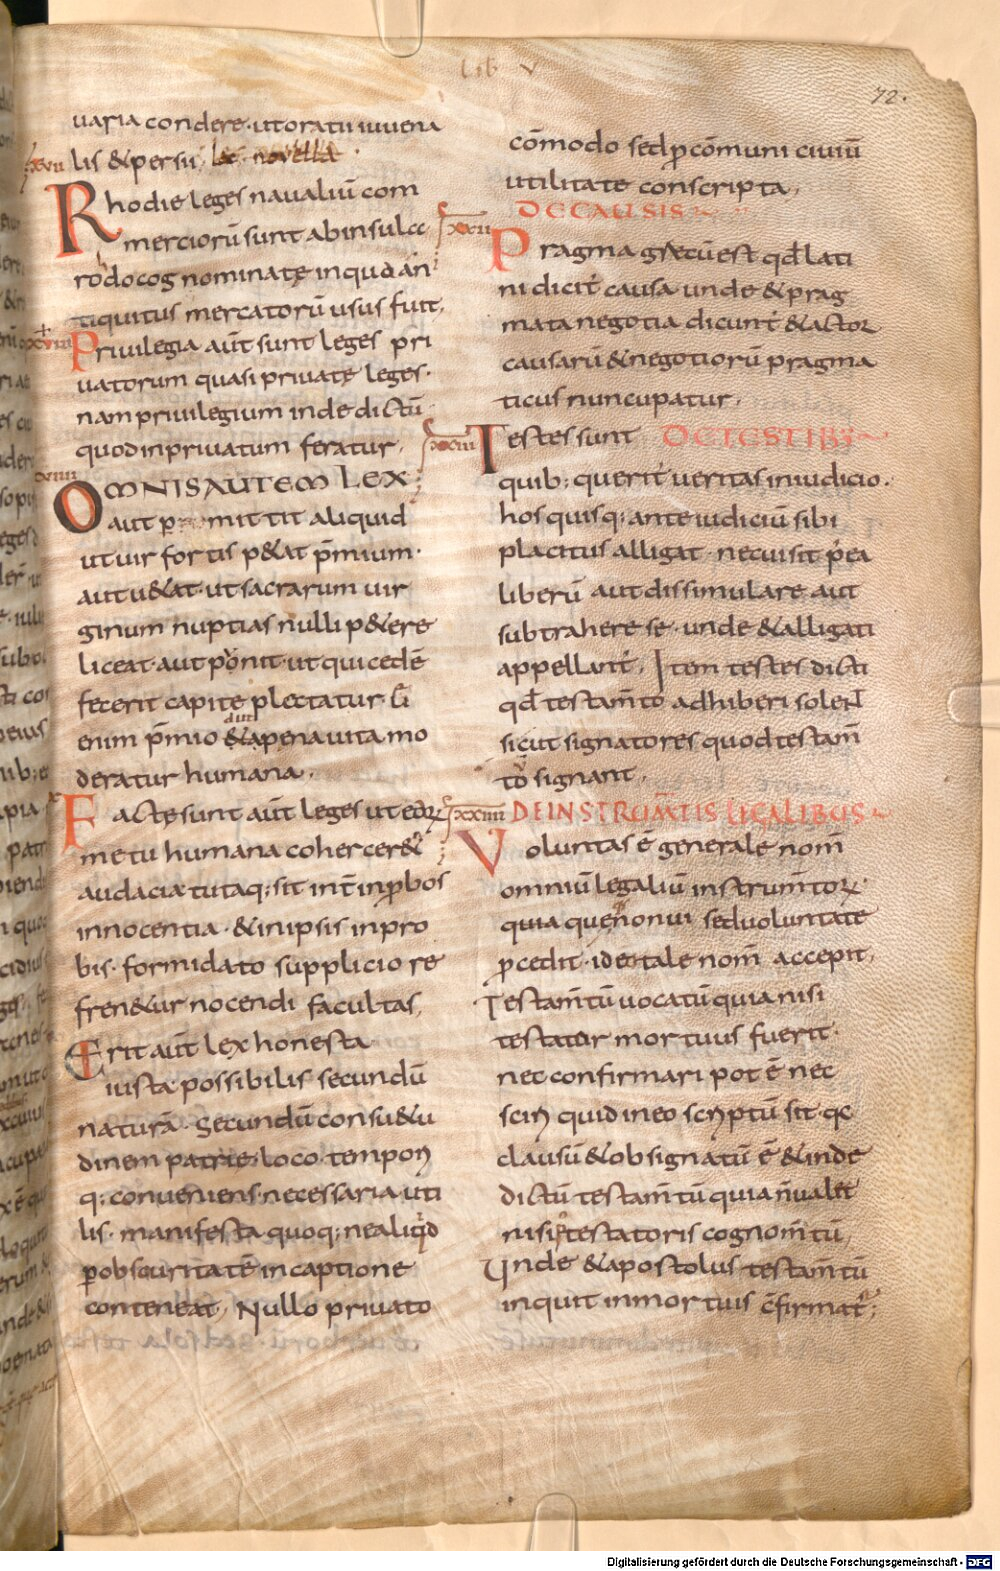 lib v
72.
uaria condere. ut oratii iuuena
lis & persii. lex novella.
xvii
Rhodie leges naualiū com
merciorū sunt ab insul
rodo cog nominatę in qua an
tiquitus mercatorū usus fuit,
xviii
Priuilegia aūt sunt leges pri
uatorum quasi priuatę leges.
nam priuilegium inde dictū
quod in priuatum feratur,
xviiii
OMNIS AUTEM LEX
aut mittit aliquid
ut uir fortis p&at p̄mium.
aut u&at. ut sacrarum uir
ginum nuptias nulli p&ere
liceat. aut ponit. ut qui cedē
fecerit capite plectatur.
enim p̄mio aut pena uita mo
deratur humana.
xx
Factę sunt aūt leges ut earum
metu humana coherceret
audacia. tutaq; sit int̄ inprobos
innocentia. & in ipsis inpro
bis. formidato supplicio re
fren&ur nocendi facultas,
Erit aūt lex honesta
iusta possibilis secundū
naturā. Secundū consu&u
dinem patrie. loco tempori
q; conueniens. necessaria uti
lis. manifesta quoq; ne aliquid
p obscuritatē in captione
conteneat, Nullo priuato
cōmodo sed p cōmuni ciuiū
utilitate conscripta,
DE CAUSIS
xxii
Pragma gręcū est qđ lati
ni dicit̄ causa unde & prag
mata negotia dicunt̄ & actor
causarū & negotiorū pragma
ticus nuncupatur,
xxiii
Testes sunt DE TESTIBus
quib; querit̄ ueritas in iudicio.
hos quisq; ante iudiciū sibi
placitus alligat. nec uisit p̄ea
liberū aut dissimulare aut
subtrahere se. unde & alligati
appellant̄. Item testes dicti
qđ testam̄to adhiberi solent
sicut signatores quod testam̄
tū signant,
xxiiii
DE INSTRUM̄TIS LEGALIBUS
Voluntas ē generale nom̄
omniū legaliū instrum̄torum.
quia que non ui sed uoluntate
pcedit. ideo tale nom̄ accepit,
Testam̄tū uocatū quia nisi
testator mortuus fuerit.
nec confirmari pot ē nec
sciri quid in eo scriptū sit. q
clausū & obsignatū ē & inde
dictū testam̄tū quia n̄ ualet
nisi p testatoris cognom̄tū,
Unde & apostolus testam̄tū
inquit in mortuis c̄firmat̄;
Digitalisierung gefördert durch die Deutsche Forschungsgemeinschaft - DFG